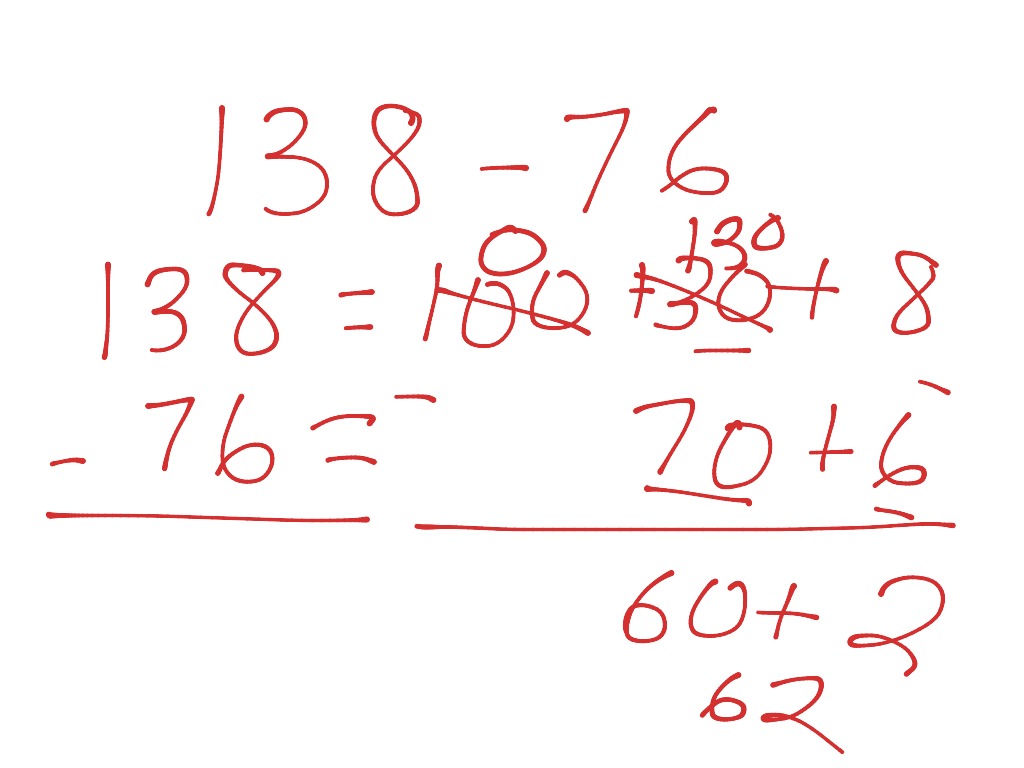 138 - 76
0 130
138 = 100 + 30 + 8
- 76 = - 70 + 6
60 + 2
62